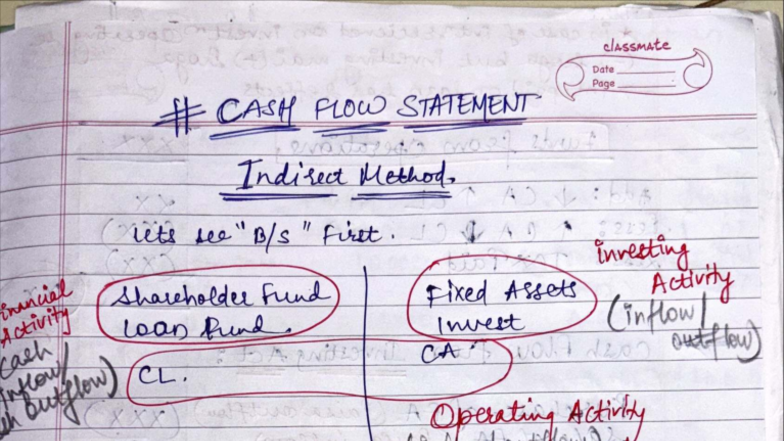 classmate
Date
Page
# CASH FLOW STATEMENT
Indirect Method.
lets see "B/S" First.
investing
Activity
(inflow/
outflow)
inancial
Activity
Cash
inflow/
outflow)
Shareholder Fund
Loan Fund.
Fixed Assets
Invest
CL.
CA
Operating Activity